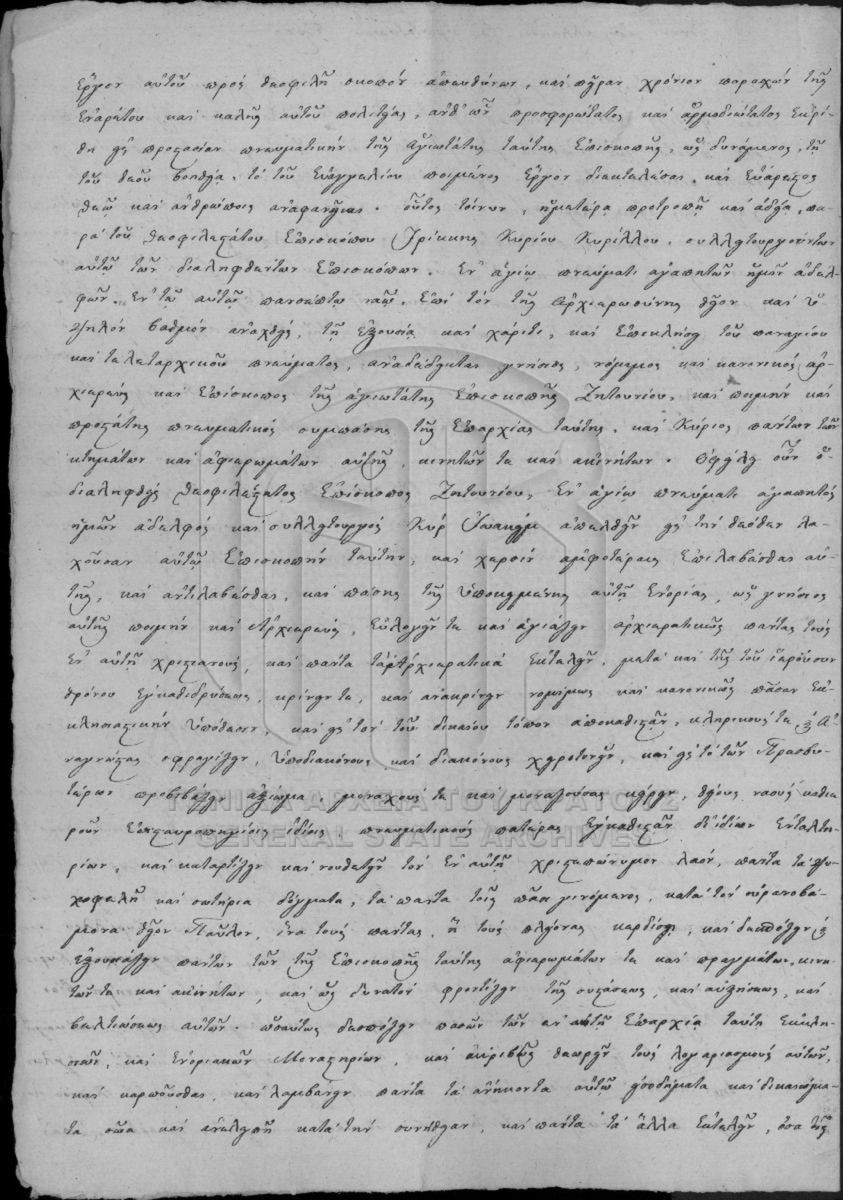 ἔργον αὐτοῦ πρὸς θεοφιλῆ σκοπόν ἀπευθύνων, καὶ πεῖραν χρόνιον παρασχών τῆς
ἐναρέτου καὶ καλῆς αὐτοῦ πολιτείας, ἀνθ' ὧν προσφορώτατος καὶ ἁρμοδιώτατος ἐκρί-
θη εἰς προστασίαν πνευματικήν τῆς ἁγιωτάτης ταύτης Ἐπισκοπῆς, ὡς δυνάμενος, τῇ
τοῦ θεοῦ βοηθείᾳ, τὸ τοῦ Εὐαγγελίου ποιμένος ἔργον διεκτελέσαι, καὶ εὐάρεστος
θεῷ καὶ ἀνθρώποις ἀναφανῆναι. οὗτος τοίνυν, ἡμετέρᾳ προτροπῇ καὶ ἀδείᾳ, πα-
ρὰ τοῦ θεοφιλεστάτου Ἐπισκόπου Τρίκκης Κυρίου Κυρίλλου, συλλειτουργούντων
αὐτῷ τῶν διαληφθέντων Ἐπισκόπων, ἐν ἁγίῳ πνεύματι ἀγαπητῶν ἡμῖν ἀδελ-
φῶν, ἐν τῷ αὐτῷ πανσέπτῳ ναῷ, ἐπὶ τὸν τῆς Ἀρχιερωσύνης θεῖον καὶ ὑ-
ψηλόν βαθμόν ἀναχθεὶς, τῇ ἐξουσίᾳ καὶ χάριτι, καὶ ἐπικλήσει τοῦ παναγίου
καὶ τελεταρχικοῦ πνεύματος, ἀναδέδεικται γνήσιος, νόμιμος καὶ κανονικός ἀρ-
χιερεὺς καὶ Ἐπίσκοπος τῆς ἁγιωτάτης Ἐπισκοπῆς Ζητουνίου, καὶ ποιμήν καὶ
προστάτης πνευματικός συμπάσης τῆς Ἐπαρχίας ταύτης, καὶ Κύριος πάντων τῶν
κτημάτων καὶ ἀφιερωμάτων αὐτῆς, κινητῶν τε καὶ ἀκινήτων. Ὀφείλει οὖν ὁ
διαληφθεὶς θεοφιλέστατος Ἐπίσκοπος Ζητουνίου, ἐν ἁγίῳ πνεύματι ἀγαπητὸς
ἡμῶν ἀδελφὸς καὶ συλλειτουργὸς Κὺρ Ἰωακεὶμ ἀπελθεῖν εἰς τὴν θεόθεν λα-
χοῦσαν αὐτῷ Ἐπισκοπήν ταύτην, καὶ χερσίν ἀμφοτέραις ἐπιλαβέσθαι αὐ-
τῆς, καὶ ἀντιλαβέσθαι, καὶ πάσης τῆς ὑποκειμένης αὐτῇ Ἐνορίας, ὡς γνήσιος
αὐτῆς ποιμήν καὶ Ἀρχιερεὺς, εὐλογεῖν τε καὶ ἁγιάζειν ἀρχιερατικῶς πάντας τοὺς
ἐν αὐτῇ χριστιανοὺς, καὶ πάντα τἀρχιερατικά ἐκτελεῖν, μετὰ καὶ τῆς τοῦ ἱεροῦ συν-
θρόνου ἐγκαθιδρύσεως, κρίνειν τε, καὶ ἀνακρίνειν νομίμως καὶ κανονικῶς πᾶσαν ἐκ-
κλησιαστικήν ὑπόθεσιν, καὶ εἰς τὸν τοῦ δικαίου τόπον ἀποκαθιστᾶν, κληρικούς τε, καὶ ἀ-
ναγνώστας σφραγίζειν, ὑποδιακόνους καὶ διακόνους χειροτονεῖν, καὶ εἰς τὸ τῶν Πρεσβυ-
τέρων προβιβάζειν ἀξίωμα, μοναχούς τε καὶ μοναζούσας κείρειν, θείους ναοὺς καθιε-
ροῦν ἐπισταυροπηγίοις ἰδίοις, πνευματικούς πατέρας ἐγκαθιστᾶν δι' ἰδίων ἐνταλτη-
ρίων, καὶ καταρτίζειν καὶ νουθετεῖν τὸν ἐν αὐτῇ χριστεπώνυμον λαόν, πάντα τὰ ψυ-
χωφελῆ καὶ σωτήρια δόγματα, τὰ πάντα τοῖς πᾶσι γινόμενος, κατὰ τὸν οὐρανοβά-
μονα θεῖον Παῦλον, ἵνα τοὺς πάντας, ἢ τοὺς πλείονας κερδίσῃ, καὶ δεσπόζειν καὶ
ἐξουσιάζειν πάντων τῶν τῆς Ἐπισκοπῆς ταύτης ἀφιερωμάτων τε καὶ πραγμάτων, κινη-
τῶν τε καὶ ἀκινήτων, καὶ ὡς δυνατόν φροντίζειν τῆς συστάσεως, καὶ αὐξήσεως, καὶ
βελτιώσεως αὐτῶν. ὡσαύτως δεσπόζειν πασῶν τῶν ἐν αὐτῇ Ἐπαρχίᾳ ταύτῃ Ἐκκλη-
σιῶν, καὶ ἐνοριακῶν Μοναστηρίων, καὶ ἀκριβῶς θεωρεῖν τοὺς λογαριασμοὺς αὐτῶν,
καὶ καρποῦσθαι, καὶ λαμβάνειν πάντα τὰ ἀνήκοντα αὐτῷ εἰσοδήματα καὶ δικαιώμα-
τα σῶα καὶ ἀνελλιπῆ κατὰ τὴν συνήθειαν, καὶ πάντα τὰ ἄλλα ἐκτελεῖν, ὅσα τῆς
ΓΕΝΙΚΑ ΑΡΧΕΙΑ ΤΟΥ ΚΡΑΤΟΥΣ
GENERAL STATE ARCHIVES